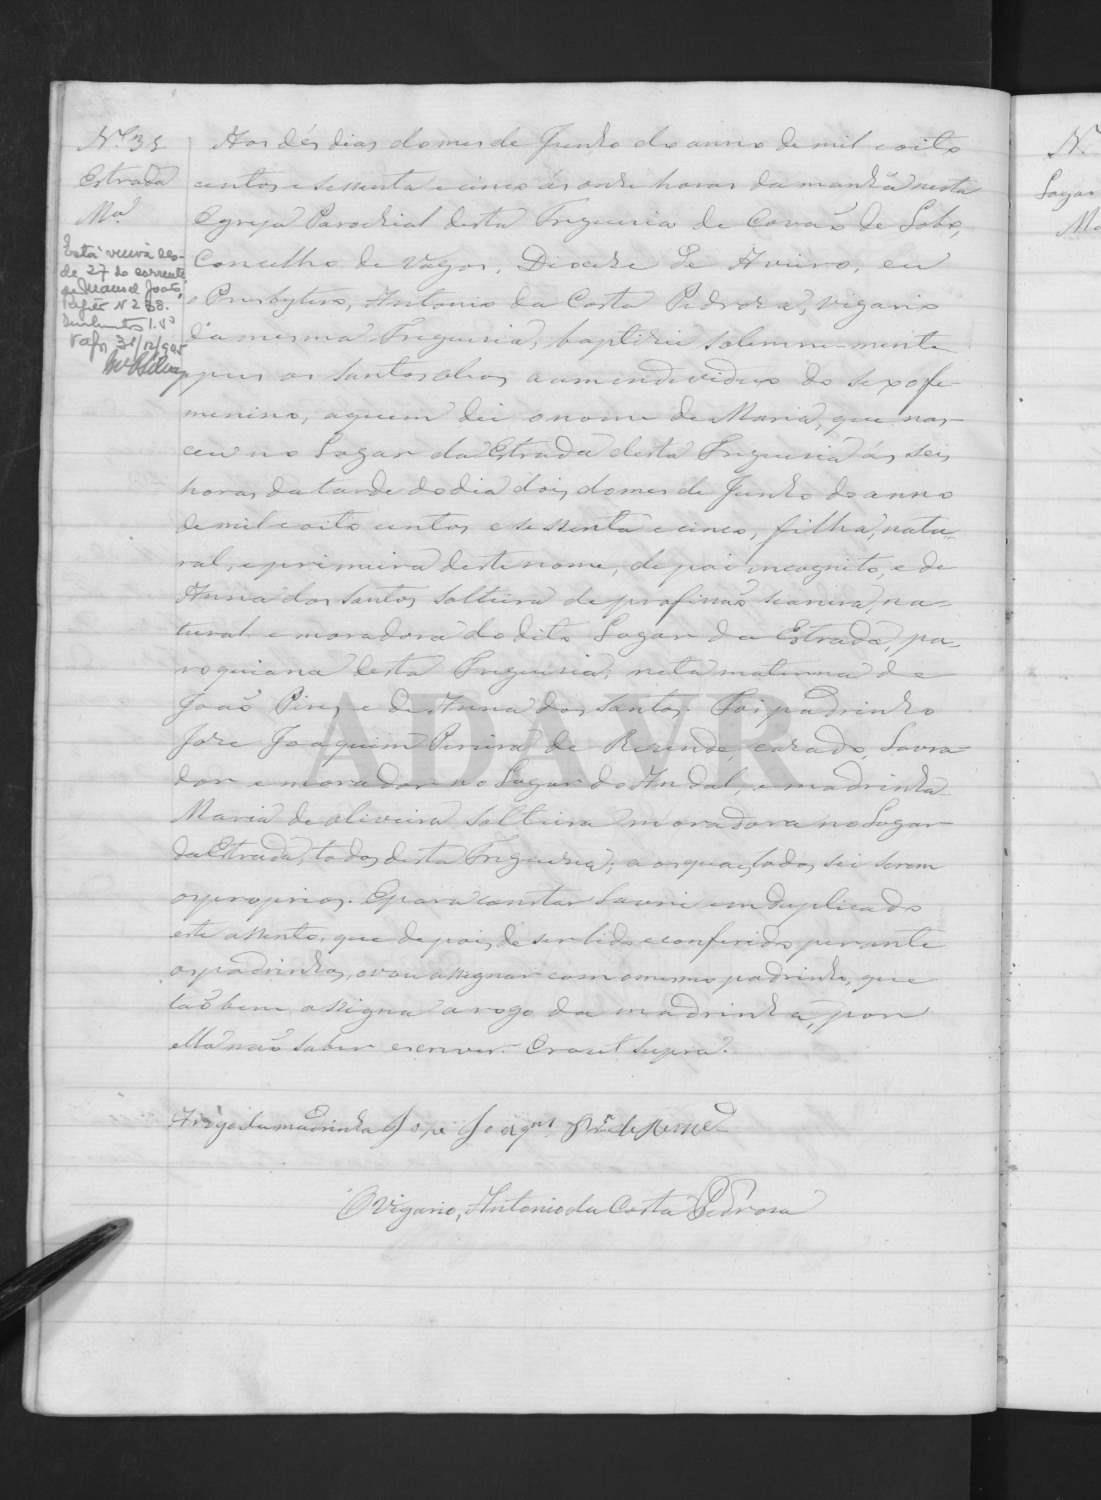 Nº 35
Estrada
Mª
Está viuva des-
de 27 do corrente
de Manuel João,
Regto Nº 238.
Vagos, 31/12/945
Aos dés dias do mes de Junho do anno de mil e oito
centos e sessenta e cinco ás onze horas da manhã nesta
Egreja Parochial desta Freguesia de Covaõ de Lobo,
Concelho de Vagos, Diocese de Aveiro, eu
o Presbytero, Antonio da Costa Pedroza, vigario
da mesma Freguesia, baptizei solemnemente
e puz os santos oleos a um individuo do sexo fe-
menino, a quem dei o nome de Maria, que nas-
ceu no Lugar da Estrada desta Freguesia ás seis
horas da tarde do dia dóis do mes de Junho do anno
de mil e oito centos e sessenta e cinco, filha, natu-
ral, e primeira deste nome, de pai incognito, e de
Anna dos Santos solteira de profissaõ seareira, na-
tural e moradora do dito Lugar da Estrada, pa-
roquiana desta Freguesia; neta materna de
Joaõ Pires e de Anna dos Santos. Foi padrinho
Joze Joaquim Pereira de Rezende, cazado, Lavra-
dor e morador no Lugar do Andal, e madrinha
Maria de oliveira Solteira moradora no Lugar
da Estrada, todos desta Freguesia; a os quaes todos sei serem
os proprios. E para constar lavrei em duplicado
este assento, que depois de ser lido e conferido perante
os padrinhos, o vou assignar com o mesmo padrinho, que
taõ bem assigna a rogo da madrinha, por
ella naõ saber escrever. Era ut supra.
A rôgo da madrinha Joze Joaqm Prª de Resde
O Vigario, Antonio da Costa Pedroza
ADAVR
Nº
Lugar